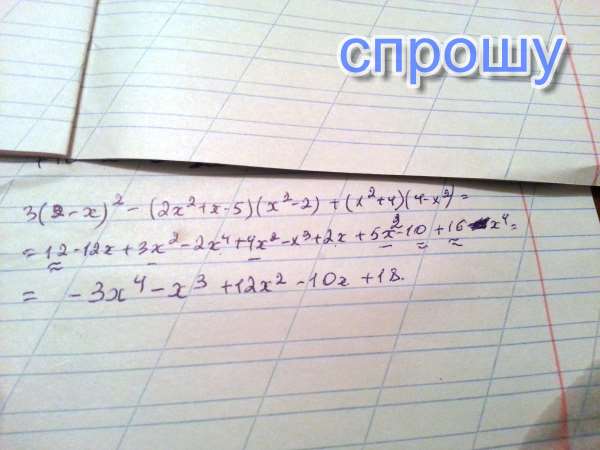 спрошу
3(2-x)² - (2x²+x-5)(x²-2) + (x²+4)(4-x²) =
= 12 - 12x + 3x² - 2x⁴ + 4x² - x³ + 2x + 5x² - 10 + 16 - x⁴ =
= -3x⁴ - x³ + 12x² - 10x + 18.